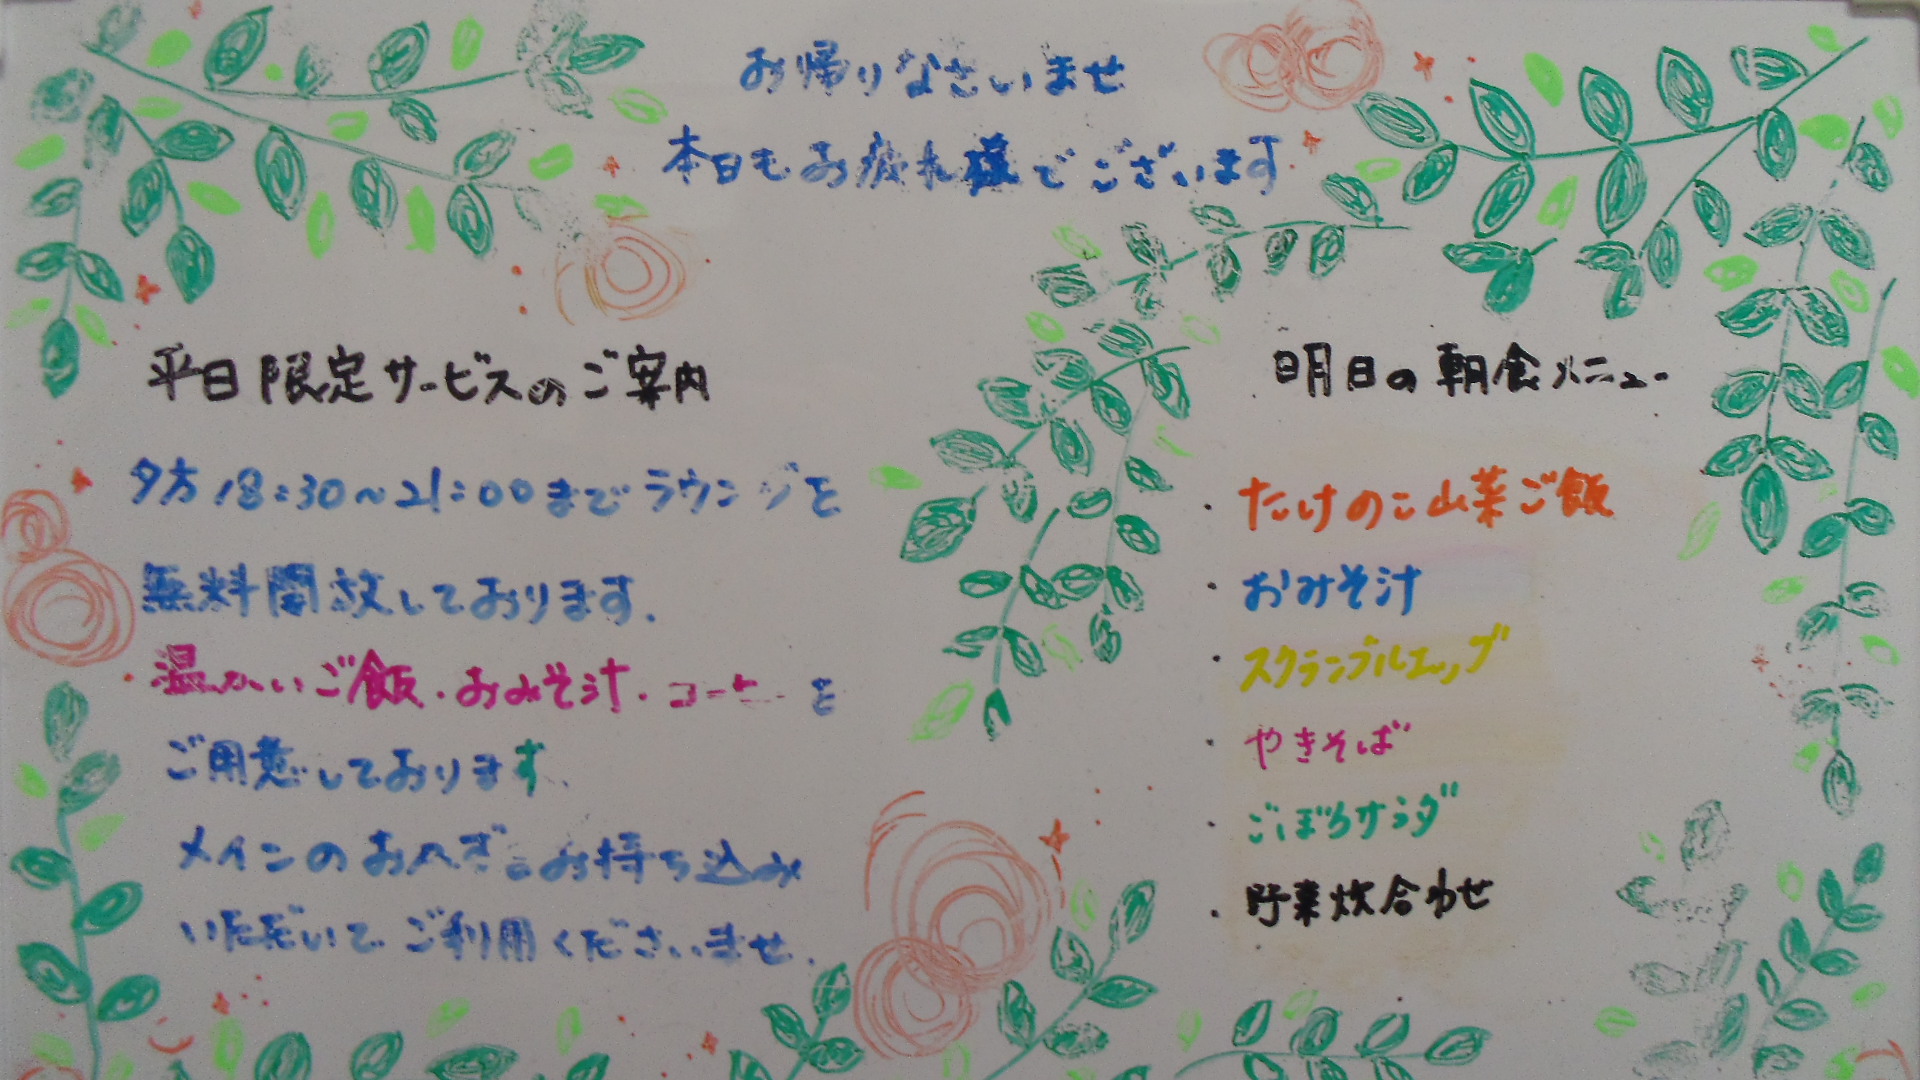 お帰りなさいませ
本日もお疲れ様でございます
平日限定サービスのご案内
夕方18:30～21:00までラウンジを
無料開放しております.
温かいご飯・おみそ汁・コーヒーを
ご用意しております.
メインのおかずをお持ち込み
いただいてご利用くださいませ.
明日の朝食メニュー
・たけのこ山菜ご飯
・おみそ汁
・スクランブルエッグ
・やきそば
・ごぼうサラダ
・野菜炊合わせ